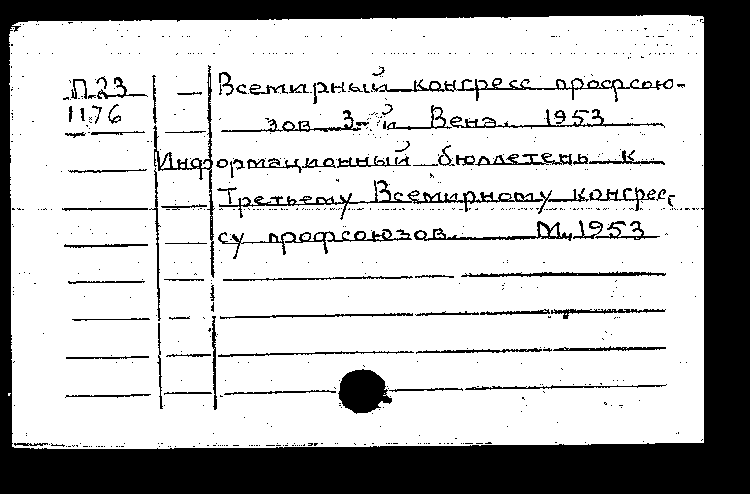 П23 Всемирный конгресс профсою-
1176 зов 3-й Вена. 1953
Информационный бюллетень к
Третьему Всемирному конгрес-
су профсоюзов. М., 1953